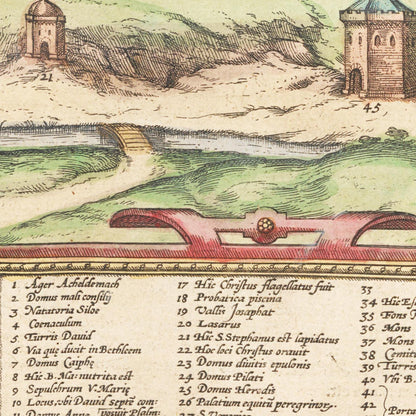 21
45
1 Ager Acheldemach
2 Domus mali consilij
3 Natatoria Siloe
4 Coenaculum
5 Turris David
6 Via que ducit in Bethleem
7 Domus Caiphe
8 Hic B. Ma: nutrita est
9 Sepulchrum V. Marię
10 Locus, obi David
17 Hic Christus flagellatus fuit
18 Probatica piscina
19 Vallis Josaphat
20 Lasarus
21 Hic S. Stephanus est lapidatus
22 Hoc loci Christus orauit
23 Domus diuitis epulonis
24 Domus Pilati
25 Domus Herodis
26 Palatium equitū peregrinor.
33
34 Hic
35 Fons
36 Mons
37 Mons
38
39 Turris
40 Vbi B.
41
42